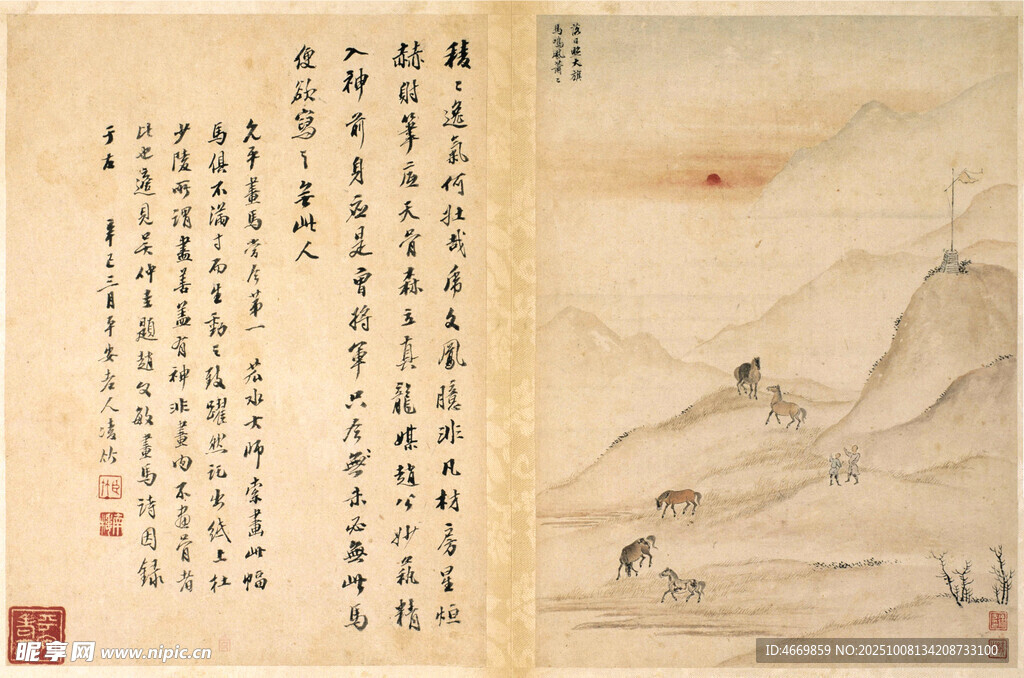 落日照大旗
馬鳴風蕭〻
稜〻逸氣何壯哉虎文鳳臆非凡材房星烜
赫筆底天骨森立真龍媒趙公妙藝精
入神前身應是曹將軍只今無未必無此馬
便欲寫之無此人
允平畫馬當今第一 若水大師索畫此幅
馬俱不滿寸而生動之致躍然託出紙上杜
少陵所謂盡善蓋有神非畫肉不畫骨者
比也適見吳仲圭題趙文敏畫馬詩因錄
于左 辛巳三月平安老人凌竹
昵享网 www.nipic.cn
ID:4669859 NO:20251008134208733100